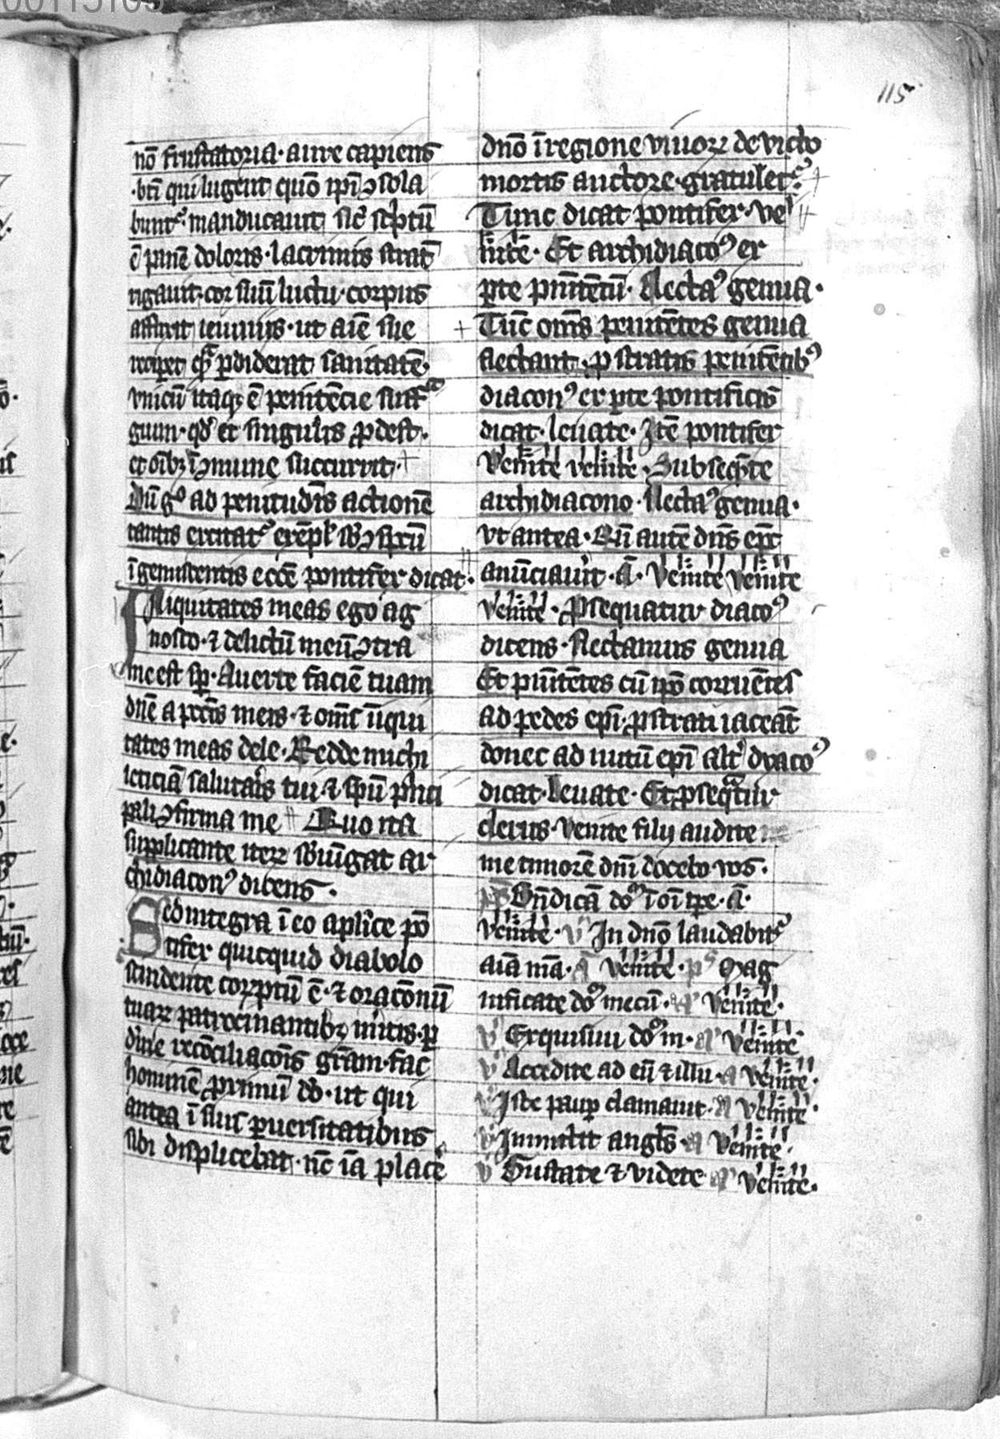 115
nō frustatoria · aure capiens
· bti qui lugent quō ip̄i ꝯsola
bunt᷒ manducauit sic̄ scptū
ē panē doloris · lacrimis strat̄
rigauit cor suū luctu · corpus
afflixit ieiuniis · ut aīe sue
recipet q̄ꝫ pdiderat sanitatē
vnicū itaqꝫ ē penitēcie suff
gium · qd̓ et singulis ꝓdest ·
et oībꝫ ī ꝯmune succurrit ·
Dū gͦ ad penitudīs actionē
tantis excitat᷒ exēpl̓ sb ꝯspectū
īgemiscentis eccē pontifex dicat ·
Iniquitates meas ego ag
nosco · ⁊ delictū meū ꝯtra
me est sp̄ · Auerte faciē tuam
dn̄e a pccīs meis · ⁊ om̄s īiqui
tates meas dele · Redde michi
leticiā salutar̄s tui ⁊ sp̄u p̄nci
pali ꝯfirma me Quo ita
supplicante iteꝝ sbiūgat ar
chidiacon᷒ dicens ·
Redintegra ī eo aplīce pō
tifex quicquid diabolo
scindente corꝛptū ē · ⁊ orac̄onū
tuaꝝ patrocinantibꝫ mitis · p
diuīe recōciliac̄ois gr̄am · fac
hominē ꝓximū dō · ut qui
antea ī suis puersitatibus
sibi displicebat · nc̄ iā placē
dn̄o ī regione viuoꝝ de victo
mortis auctore · gratulet᷒
Tunc dicat pontifex · ve
nite · Et archidiaco᷒ ex
pte pnitentū · flecta᷒ genua ·
Tūc om̄s penitētes genua
flectant · ꝓstratis penitētib᷒
diacon᷒ ex pte pontificis
dicat · leuate · Itē pontifex
Venite venite · Subseqn̄te
archidiacono · flecta᷒ genua ·
vt antea · Cū autē dn̄s ep̄c
anūciauit · A̅ · Venite venite
venite · ꝓsequatur diaco᷒
dicens · flectamus genua
Et pnitētes cū ip̄o corruētes
ad pedes ep̄i · ꝓstrati iaceāt
donec ad nutū ep̄i alt̓ dyaco᷒
dicat · leuate · Et ꝓseqat̄ur
clerus · venite filij audite
me timorē dn̄i docebo vos ·
Bn̄dicā doͫ ī oī tp̄e · A̅ ·
venite · v̓ In dn̄o laudabit᷒
aīa m̄a · A̅ venite · pͨ Mag
nificate doͫ mecū · A̅ Venite ·
v̓ Exquisiui doͫ ⁊ · A̅ Venite
v̓ Accedite ad eū ⁊ illu · A̅ venite ·
v̓ Iste paup clamauit · A̅ Venite ·
v̓ Inmittit angl̄s A̅ Venite ·
v̓ Gustate ⁊ videte A̅ venite ·